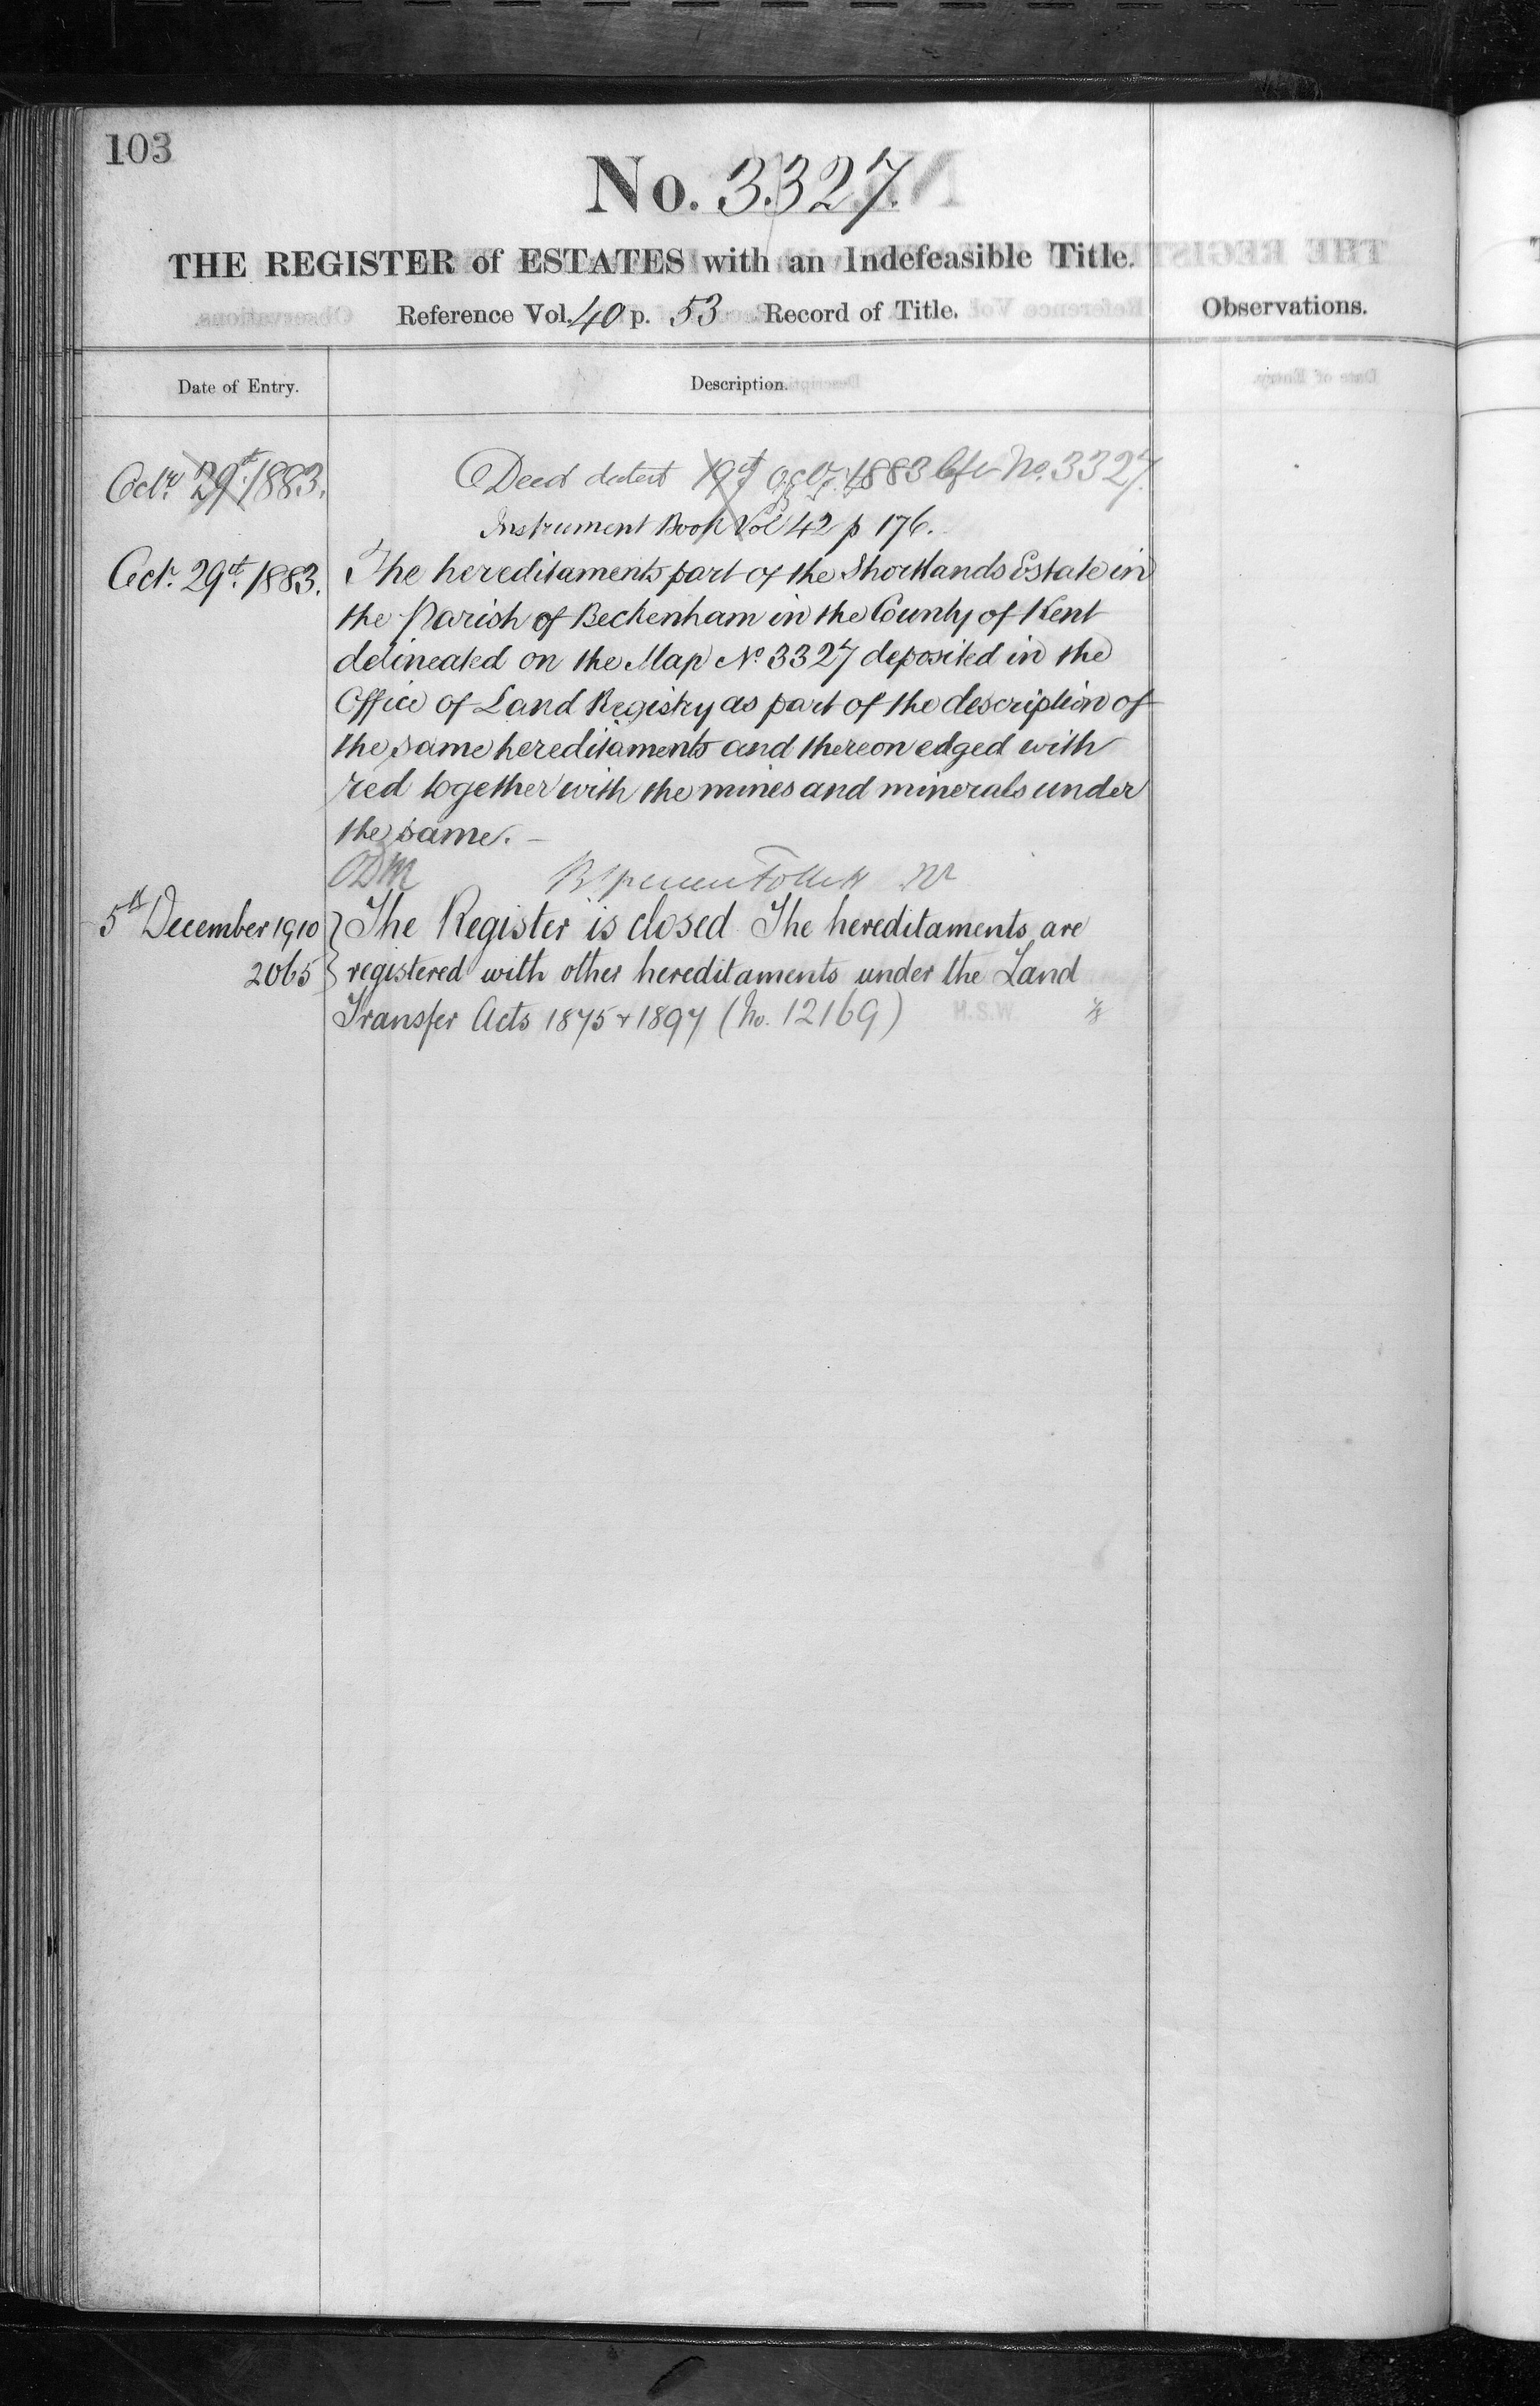 103
No. 3327.
THE REGISTER of ESTATES with an Indefeasible Title.
Reference Vol. 40 p. 53 Record of Title.
Observations.
Date of Entry.
Description.
Octr. 29th. 1883.
Deed dated 19th Octr. 1883 No. 3327.
Instrument Book Vol 42 p 176.
Octr. 29th. 1883.
The hereditaments part of the Shortlands Estate in
the Parish of Beckenham in the County of Kent
delineated on the Map No 3327 deposited in the
Office of Land Registry as part of the description of
the same hereditaments and thereon edged with
red together with the mines and minerals under
the same. —
5th December 1910
2065
The Register is closed The hereditaments are
registered with other hereditaments under the Land
Transfer Acts 1875 & 1897 (No. 12169)
H.S.W.